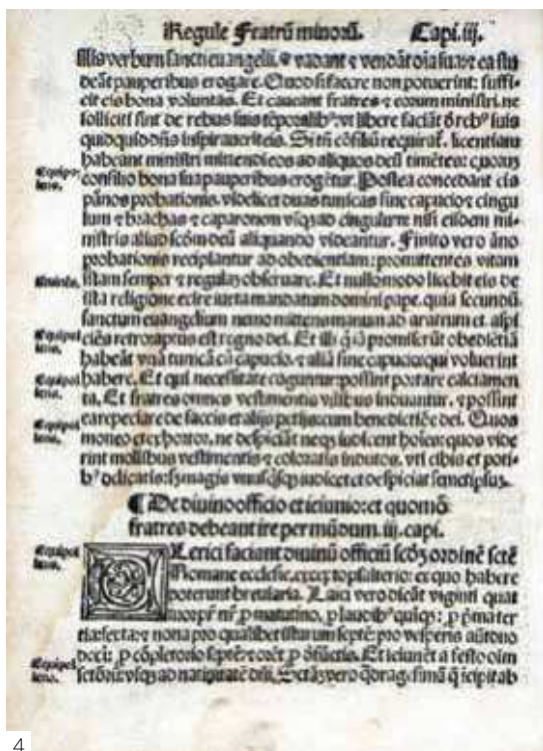 Regule Fratrū minorū. Capi. iij.
illis verbum sancti euangelii. ꝙ vadant ⁊ vendāt oīa sua: ⁊ ea stu
deāt pauperibus erogare. Quod si facere non potuerint: suffi-
cit eis bona voluntas. Et caueant fratres ⁊ eorum ministri. ne
solliciti sint de rebus suis tēporalibꝰ: vt libere faciāt ō rebꝰ suis
quidquid dn̄s inspirauerit eis. Si tn̄ cōsiliū requirat. licentiam
habeant ministri mittendi eos ad aliquos deū timētes: quorum
Equipol
lens.
consilio bona sua pauperibus erogētur. Postea concedant eis
pānos probationis. videlicet duas tunicas sine capucio: ⁊ cingu
lum ⁊ brachas ⁊ caparonem vsqꝫ ad cingulum: nisi eisdem mi-
nistris aliud scōm deū aliquando videantur. Finito vero āno
probationis recipiantur ad obedientiam: promittentes vitam
istam semper ⁊ regulaꝫ obseruare. Et nullomodo licebit eis de
ista religione exire iuxta mandatum domini pape. quia secundū.
sanctum euangelium nemo mittens manum ad aratrum et aspi
Equipol
lens.
ciēs retro aptus est regno dei. Et illi q̄ iā promiserūt obediētiā
habeāt vnā tunicā cū capucio. ⁊ aliā sine capucio: qui voluerint
Equipol
lens.
habere. Et qui necessitate coguntur: possint portare calciamen
ta. Et fratres omnes vestimentis vilibus induantur. ⁊ possint
ea repeciare de saccis et alijs petijs: cum benedictiōe dei. Quos
Equipol
lens.
moneo et exhortor. ne despiciāt neqꝫ iudicent hoīes: quos vide
rint mollibus vestimentis ⁊ coloratis indutos. vti cibis et poti-
bꝰ delicatis: sꝫ magis vnusqͥsqꝫ iudicet et despiciat semetipsuꝫ.
¶ De diuino officio et ieiunio: et quomō
fratres debeant ire per mūdum. iij. capi.
Equipol
lens.
Clerici faciant diuinū officiū scōꝫ ordinē sctē
Romane ecclesie. excepto psalterio: ex quo habere
poterunt breuiaria. Laici vero dicāt viginti quat
tuor pr̄ nr̄ ꝓ matutino. ꝓ laudibꝰ quīqꝫ: ꝓ p̄ma ter
tia: sexta: ⁊ nona pro qualibet istarum septē: pro vesperis autē duo
deci: ꝓ cōpletorio septē: ⁊ orēt ꝓ dfūctis. Et ieiunēt a festo oīm
Equipol
lens.
sctōrū: vsqꝫ ad natiuitatē dn̄i. Sctāꝫ vero q̄dragesimā q̄ īcipit ab
4